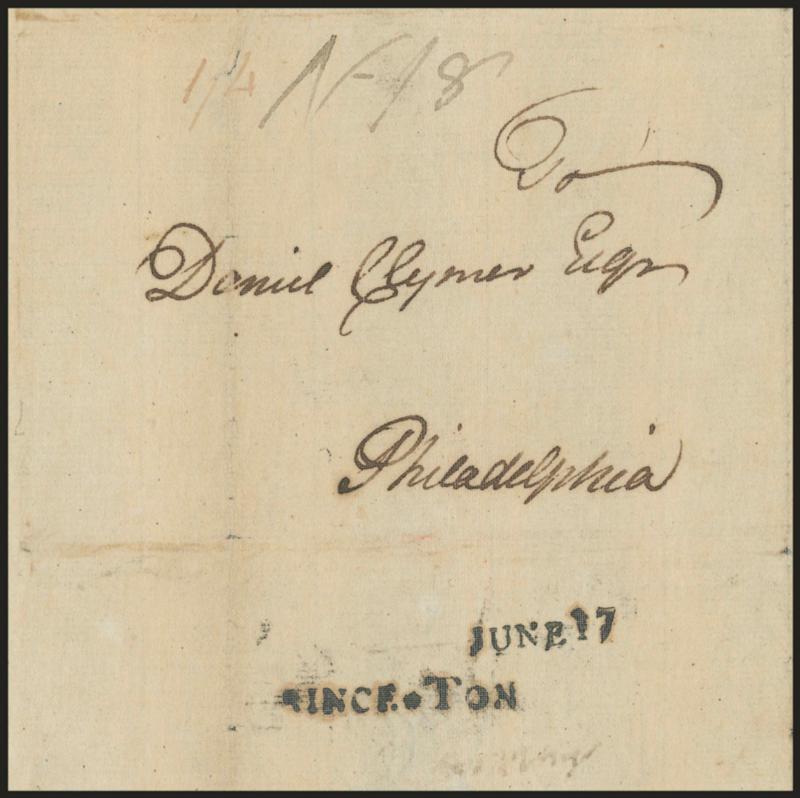 1/4 N-/8
To
Daniel Clymer Esqr
Philadelphia
JUNE 17
RINCE•TON